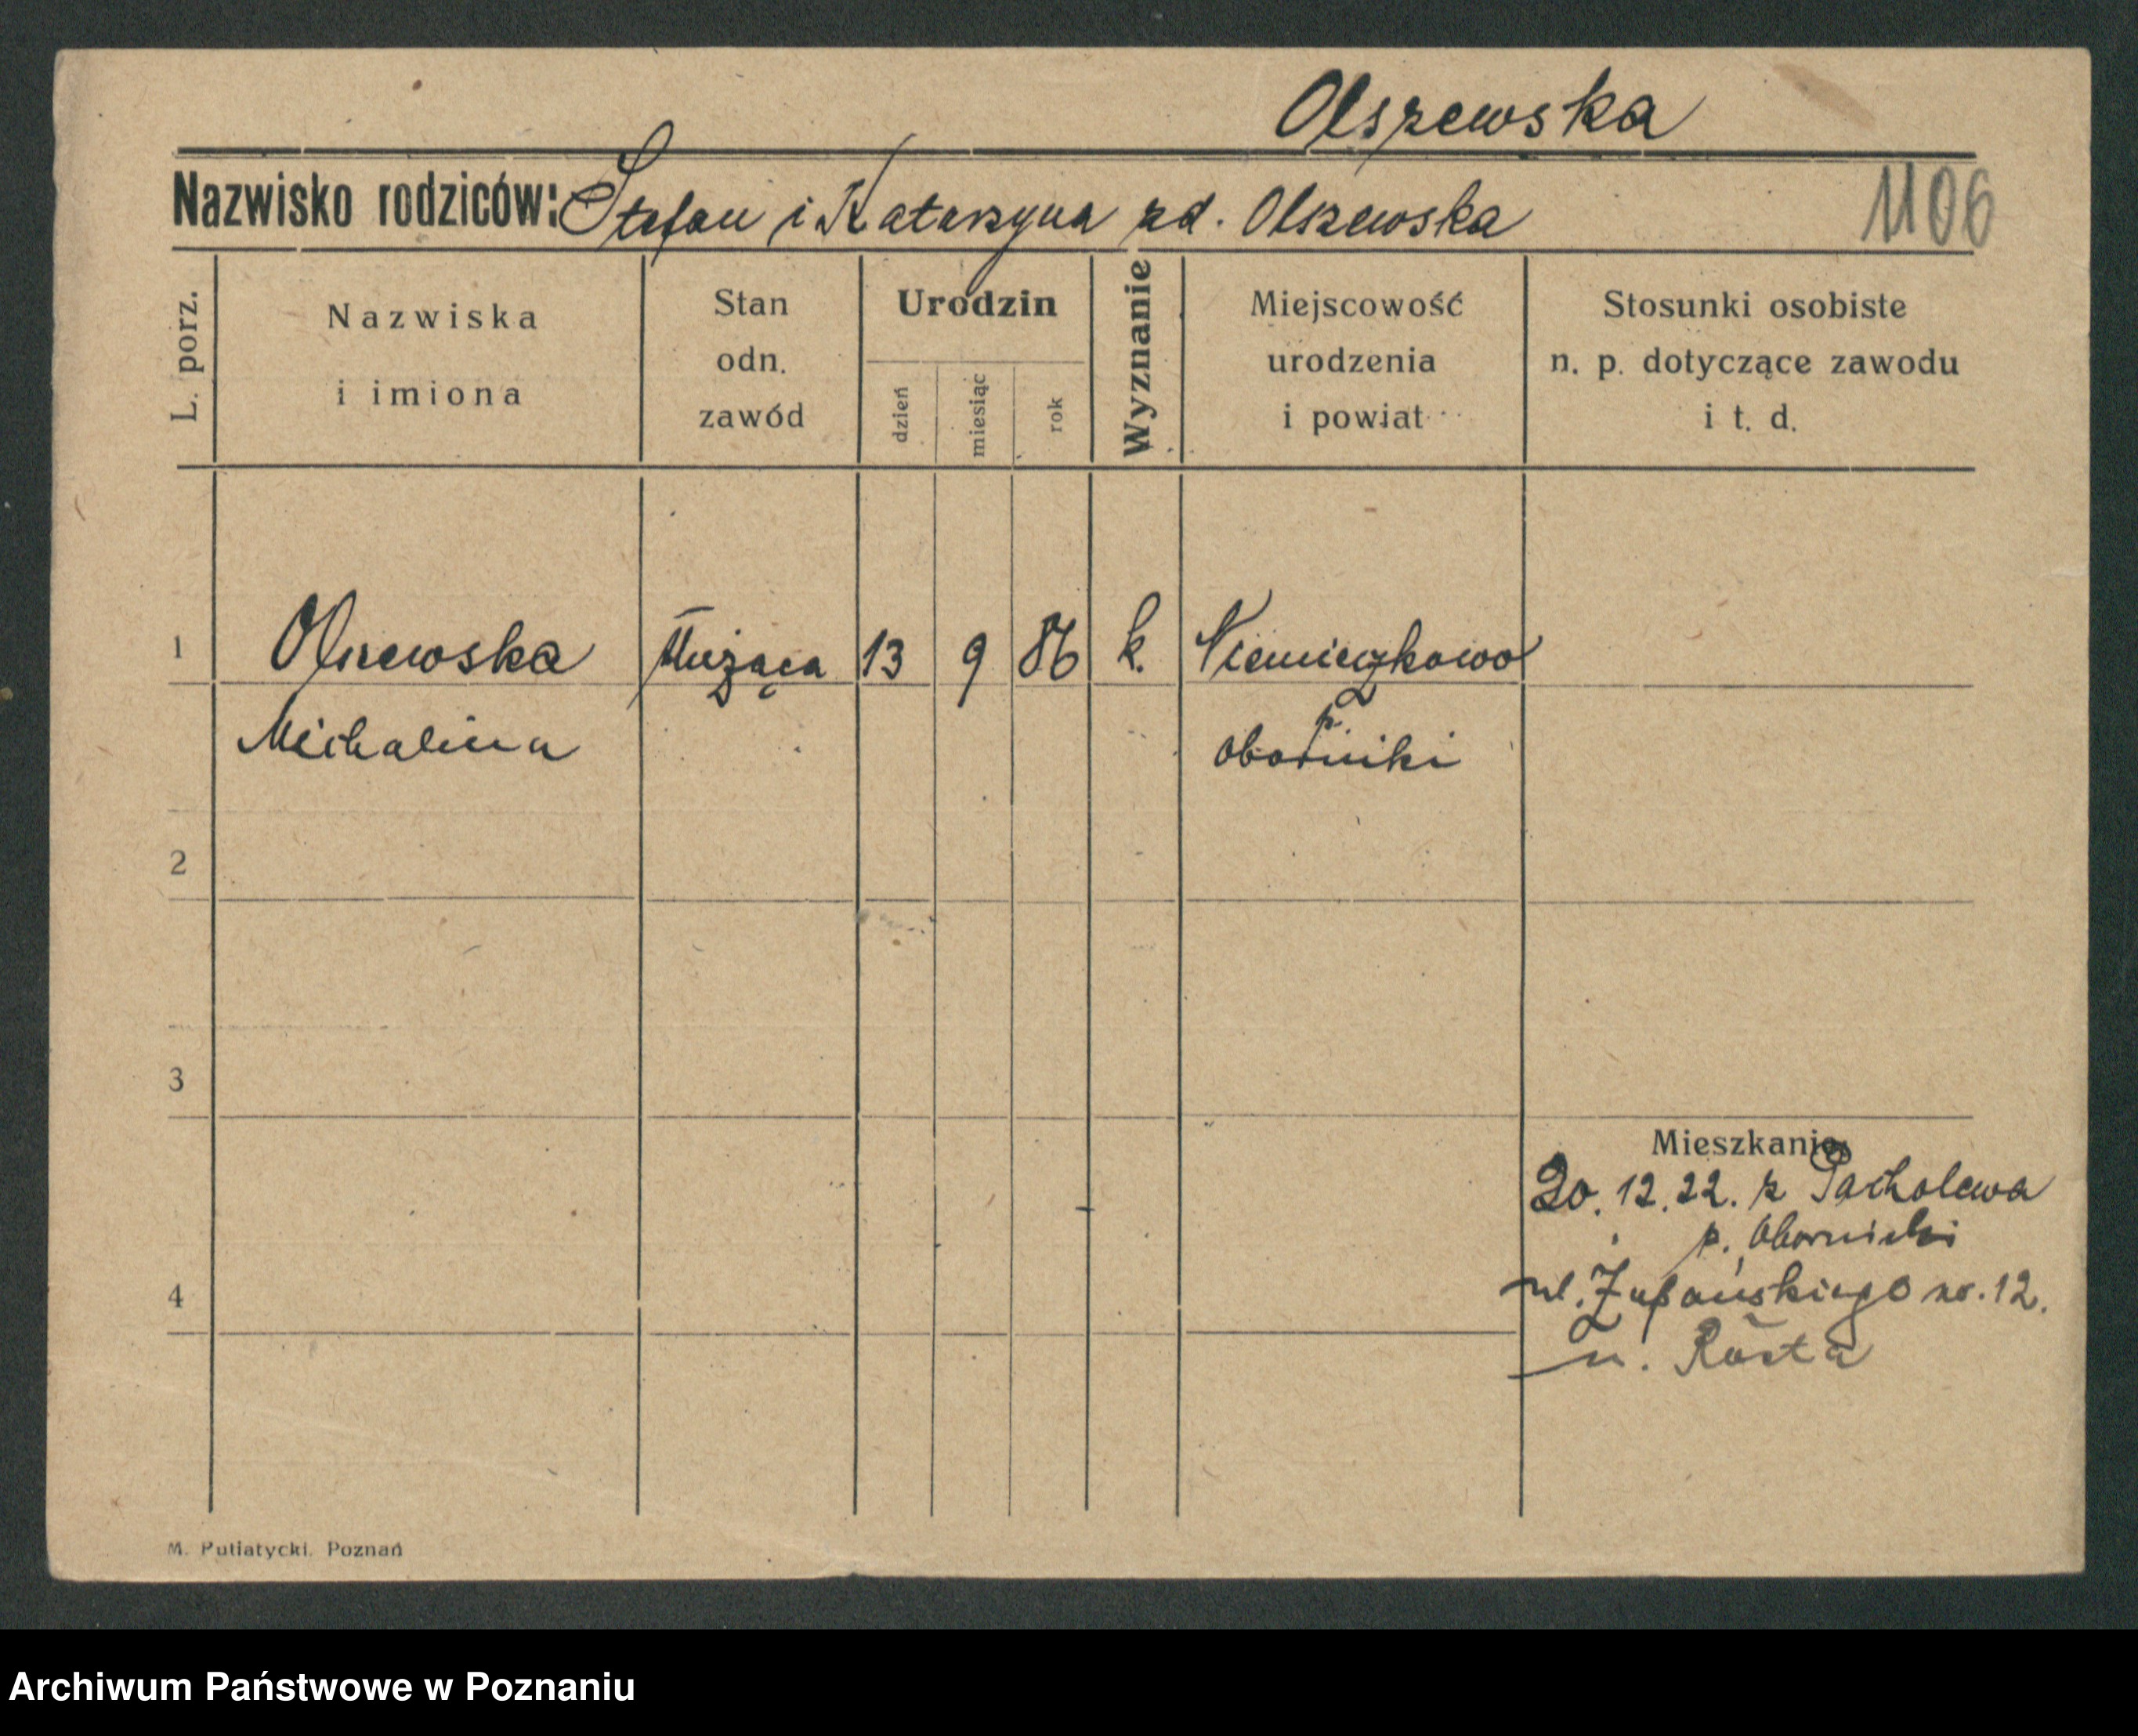 Olszewska
Nazwisko rodziców: Stefan i Katarzyna zd. Olszewska
1106
L. porz.
Nazwiska
i imiona
Stan
odn.
zawód
Urodzin
dzień
miesiąc
rok
Wyznanie
Miejscowość
urodzenia
i powiat
Stosunki osobiste
n. p. dotyczące zawodu
i t. d.
1 Olszewska służąca 13 9 86 k. Niemieczkowo
Michalina
p.
Oborniki
2
3
Mieszkanie
20.12.22. z Pacholewa
p. Obornicki
4
ul. Żupańskiego no. 12.
u.
M. Putiatycki, Poznań
Archiwum Państwowe w Poznaniu